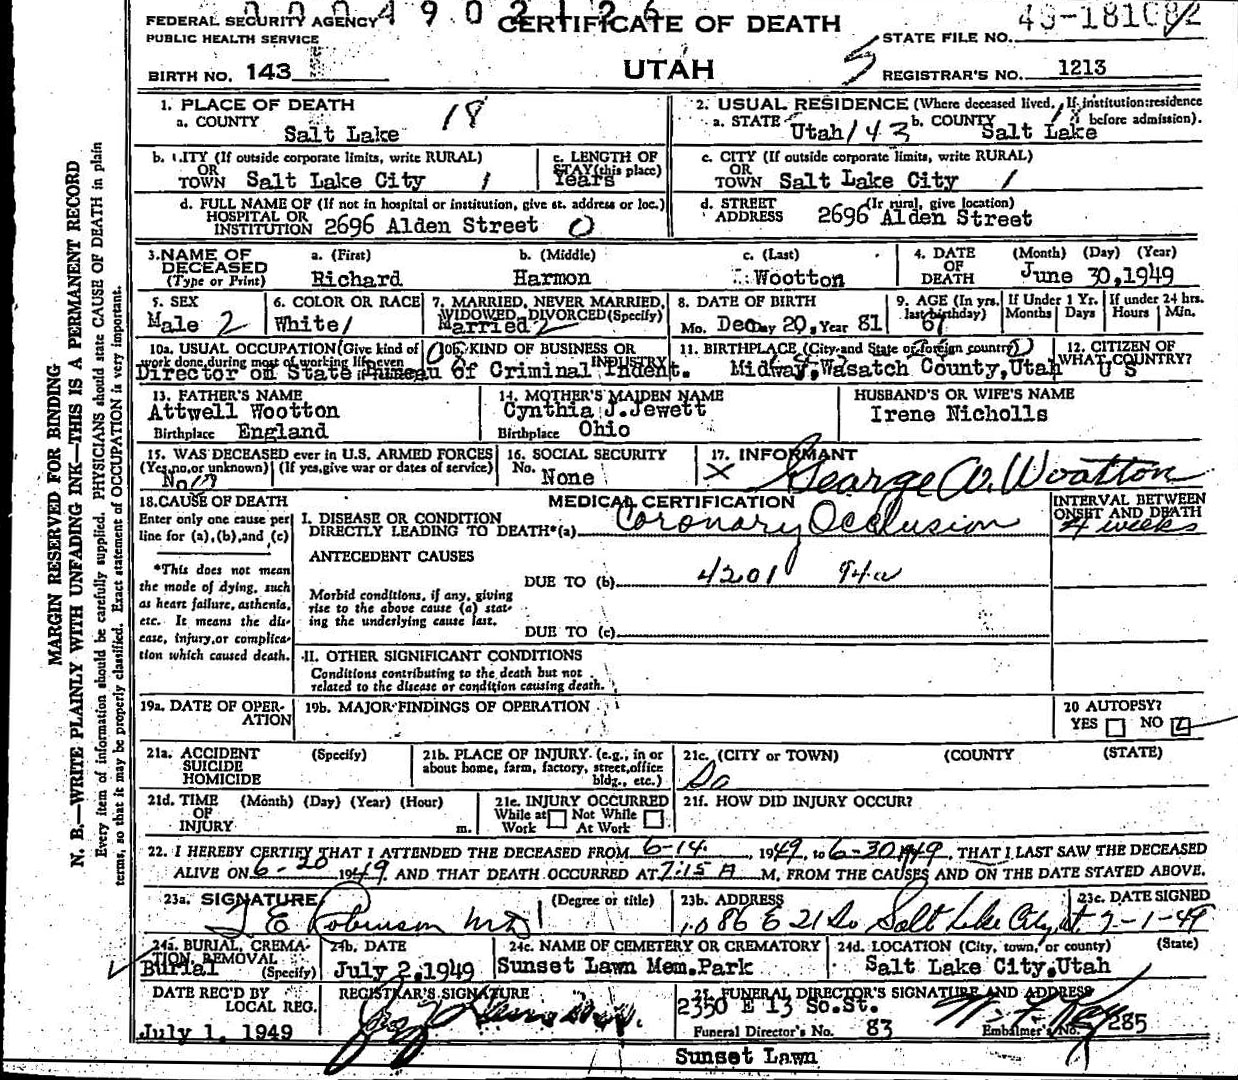 0 0 0 4 9 0 2 1 2 6
FEDERAL SECURITY AGENCY
PUBLIC HEALTH SERVICE
BIRTH NO. 143
CERTIFICATE OF DEATH
UTAH
STATE FILE NO.
REGISTRAR'S NO. 1213
MARGIN RESERVED FOR BINDING
N. B.—WRITE PLAINLY WITH UNFADING INK—THIS IS A PERMANENT RECORD
Every item of information should be carefully supplied. PHYSICIANS should state CAUSE OF DEATH in plain
terms, so that it may be properly classified. Exact statement of OCCUPATION is very important.
1. PLACE OF DEATH
a. COUNTY
Salt Lake
18
2. USUAL RESIDENCE (Where deceased lived. If institution: residence
before admission).
a. STATE Utah 143 b. COUNTY Salt Lake
b. CITY (If outside corporate limits, write RURAL)
OR
TOWN Salt Lake City 1
c. LENGTH OF
STAY (this place)
Years
c. CITY (If outside corporate limits, write RURAL)
OR
TOWN Salt Lake City 1
d. FULL NAME OF (If not in hospital or institution, give st. address or loc.)
HOSPITAL OR
INSTITUTION 2696 Alden Street 0
d. STREET (If rural, give location)
ADDRESS 2696 Alden Street
3. NAME OF
DECEASED
(Type or Print)
a. (First)
Richard
b. (Middle)
Harmon
c. (Last)
Wootton
4. DATE
OF
DEATH
(Month) (Day) (Year)
June 30,1949
5. SEX
Male 2
6. COLOR OR RACE
White 1
7. MARRIED, NEVER MARRIED,
WIDOWED, DIVORCED (Specify)
Married 2
8. DATE OF BIRTH
Mo. Dec Day 20, Year 81
9. AGE (In yrs.
last birthday)
67
If Under 1 Yr.
Months Days
If under 24 hrs.
Hours Min.
10a. USUAL OCCUPATION (Give kind of
work done during most of working life, even
10b. KIND OF BUSINESS OR
INDUSTRY
Director on State Bureau of Criminal Indent.
11. BIRTHPLACE (City and State or foreign country)
Midway,Wasatch County,Utah
12. CITIZEN OF
WHAT COUNTRY?
U S
13. FATHER'S NAME
Attwell Wootton
Birthplace England
14. MOTHER'S MAIDEN NAME
Cynthia J.Jewett
Birthplace Ohio
HUSBAND'S OR WIFE'S NAME
Irene Nicholls
15. WAS DECEASED ever in U.S. ARMED FORCES
(Yes, no, or unknown) (If yes, give war or dates of service)
No
16. SOCIAL SECURITY
No. None
17. INFORMANT
X George A. Wootton
18. CAUSE OF DEATH
Enter only one cause per
line for (a), (b), and (c)
*This does not mean
the mode of dying, such
as heart failure, asthenia,
etc. It means the dis-
ease, injury, or complica-
tion which caused death.
MEDICAL CERTIFICATION
INTERVAL BETWEEN
ONSET AND DEATH
I. DISEASE OR CONDITION
DIRECTLY LEADING TO DEATH*(a) Coronary Occlusion
4 weeks
ANTECEDENT CAUSES
DUE TO (b) 4201 94a
Morbid conditions, if any, giving
rise to the above cause (a) stat-
ing the underlying cause last.
DUE TO (c)
II. OTHER SIGNIFICANT CONDITIONS
Conditions contributing to the death but not
related to the disease or condition causing death.
19a. DATE OF OPER-
ATION
19b. MAJOR FINDINGS OF OPERATION
20 AUTOPSY?
YES NO
21a. ACCIDENT
SUICIDE
HOMICIDE
(Specify)
21b. PLACE OF INJURY (e.g., in or
about home, farm, factory, street, office
bldg., etc.)
21c. (CITY or TOWN) (COUNTY) (STATE)
21d. TIME
OF
INJURY
(Month) (Day) (Year) (Hour)
m.
21e. INJURY OCCURRED
While at
Work
Not While
At Work
21f. HOW DID INJURY OCCUR?
22. I HEREBY CERTIFY THAT I ATTENDED THE DECEASED FROM 6-14, 1949, to 6-30 1949, THAT I LAST SAW THE DECEASED
ALIVE ON 6-20 1949 AND THAT DEATH OCCURRED AT 7:15 A M. FROM THE CAUSES AND ON THE DATE STATED ABOVE.
23a. SIGNATURE (Degree or title)
E Robinson MD
23b. ADDRESS
1086 E 21 So Salt Lake City, Ut.
23c. DATE SIGNED
7-1-49
24a. BURIAL, CREMA-
TION, REMOVAL
Burial (Specify)
24b. DATE
July 2,1949
24c. NAME OF CEMETERY OR CREMATORY
Sunset Lawn Mem.Park
24d. LOCATION (City, town, or county) (State)
Salt Lake City,Utah
DATE REC'D BY
LOCAL REG.
July 1, 1949
REGISTRAR'S SIGNATURE
25. FUNERAL DIRECTOR'S SIGNATURE AND ADDRESS
2350 E 13 So.St.
Funeral Director's No. 83 Embalmer's No. 285
Sunset Lawn